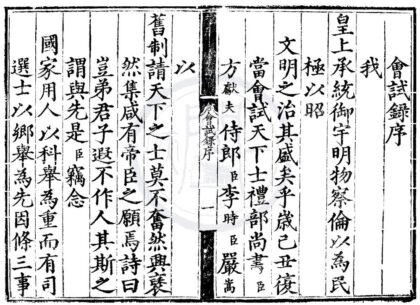 會試錄序
我
皇上承統御宇明物察倫以為民
極以昭
文明之治其盛矣乎歲己丑復
當會試天下士禮部尚書臣
方獻夫侍郎臣李時臣嚴嵩
會試錄序
一
以
舊制請天下之士莫不奮然興裦
然集咸有帝臣之願焉詩曰
豈弟君子遐不作人其斯之
謂與先是臣竊念
國家用人以科舉為重而有司
選士以鄉舉為先因條三事